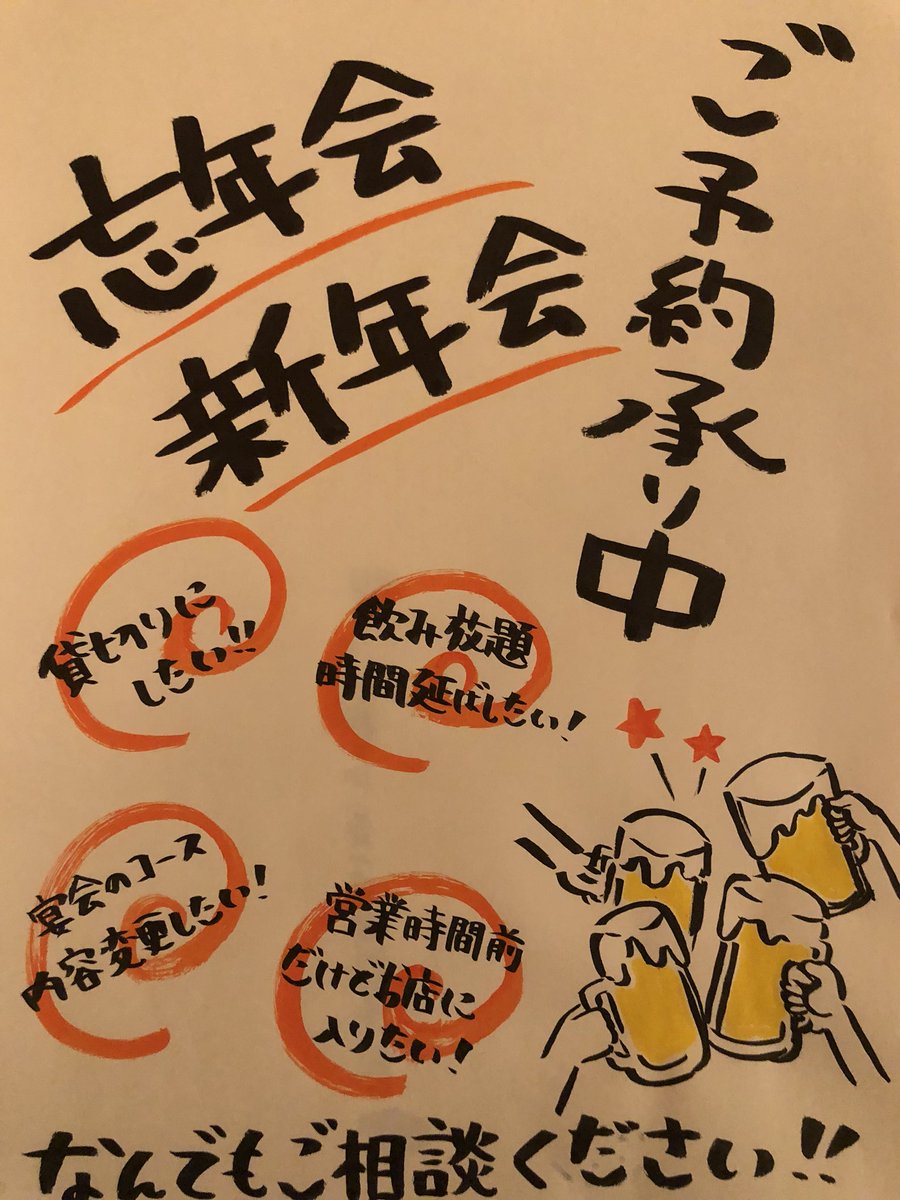 忘年会
新年会
ご予約承り中
貸切りに
したい!!
飲み放題
時間延ばしたい!
宴会のコース
内容変更したい!
営業時間前
だけどお店に
入りたい!
なんでもご相談ください!!